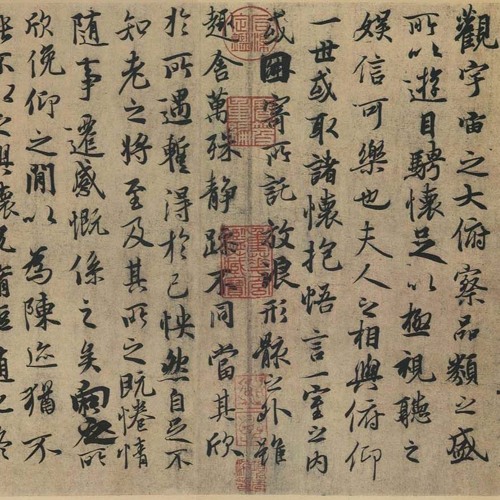 觀宇宙之大俯察品類之盛
所以遊目騁懷足以極視聽之
娛信可樂也夫人之相與俯仰
一世或取諸懷抱悟言一室之內
或因寄所託放浪形骸之外雖
趣舍萬殊静躁不同當其欣
於所遇暫得於己怏然自足不
知老之將至及其所之既惓情
隨事遷感慨係之矣向之所
欣俛仰之閒以為陳迹猶不